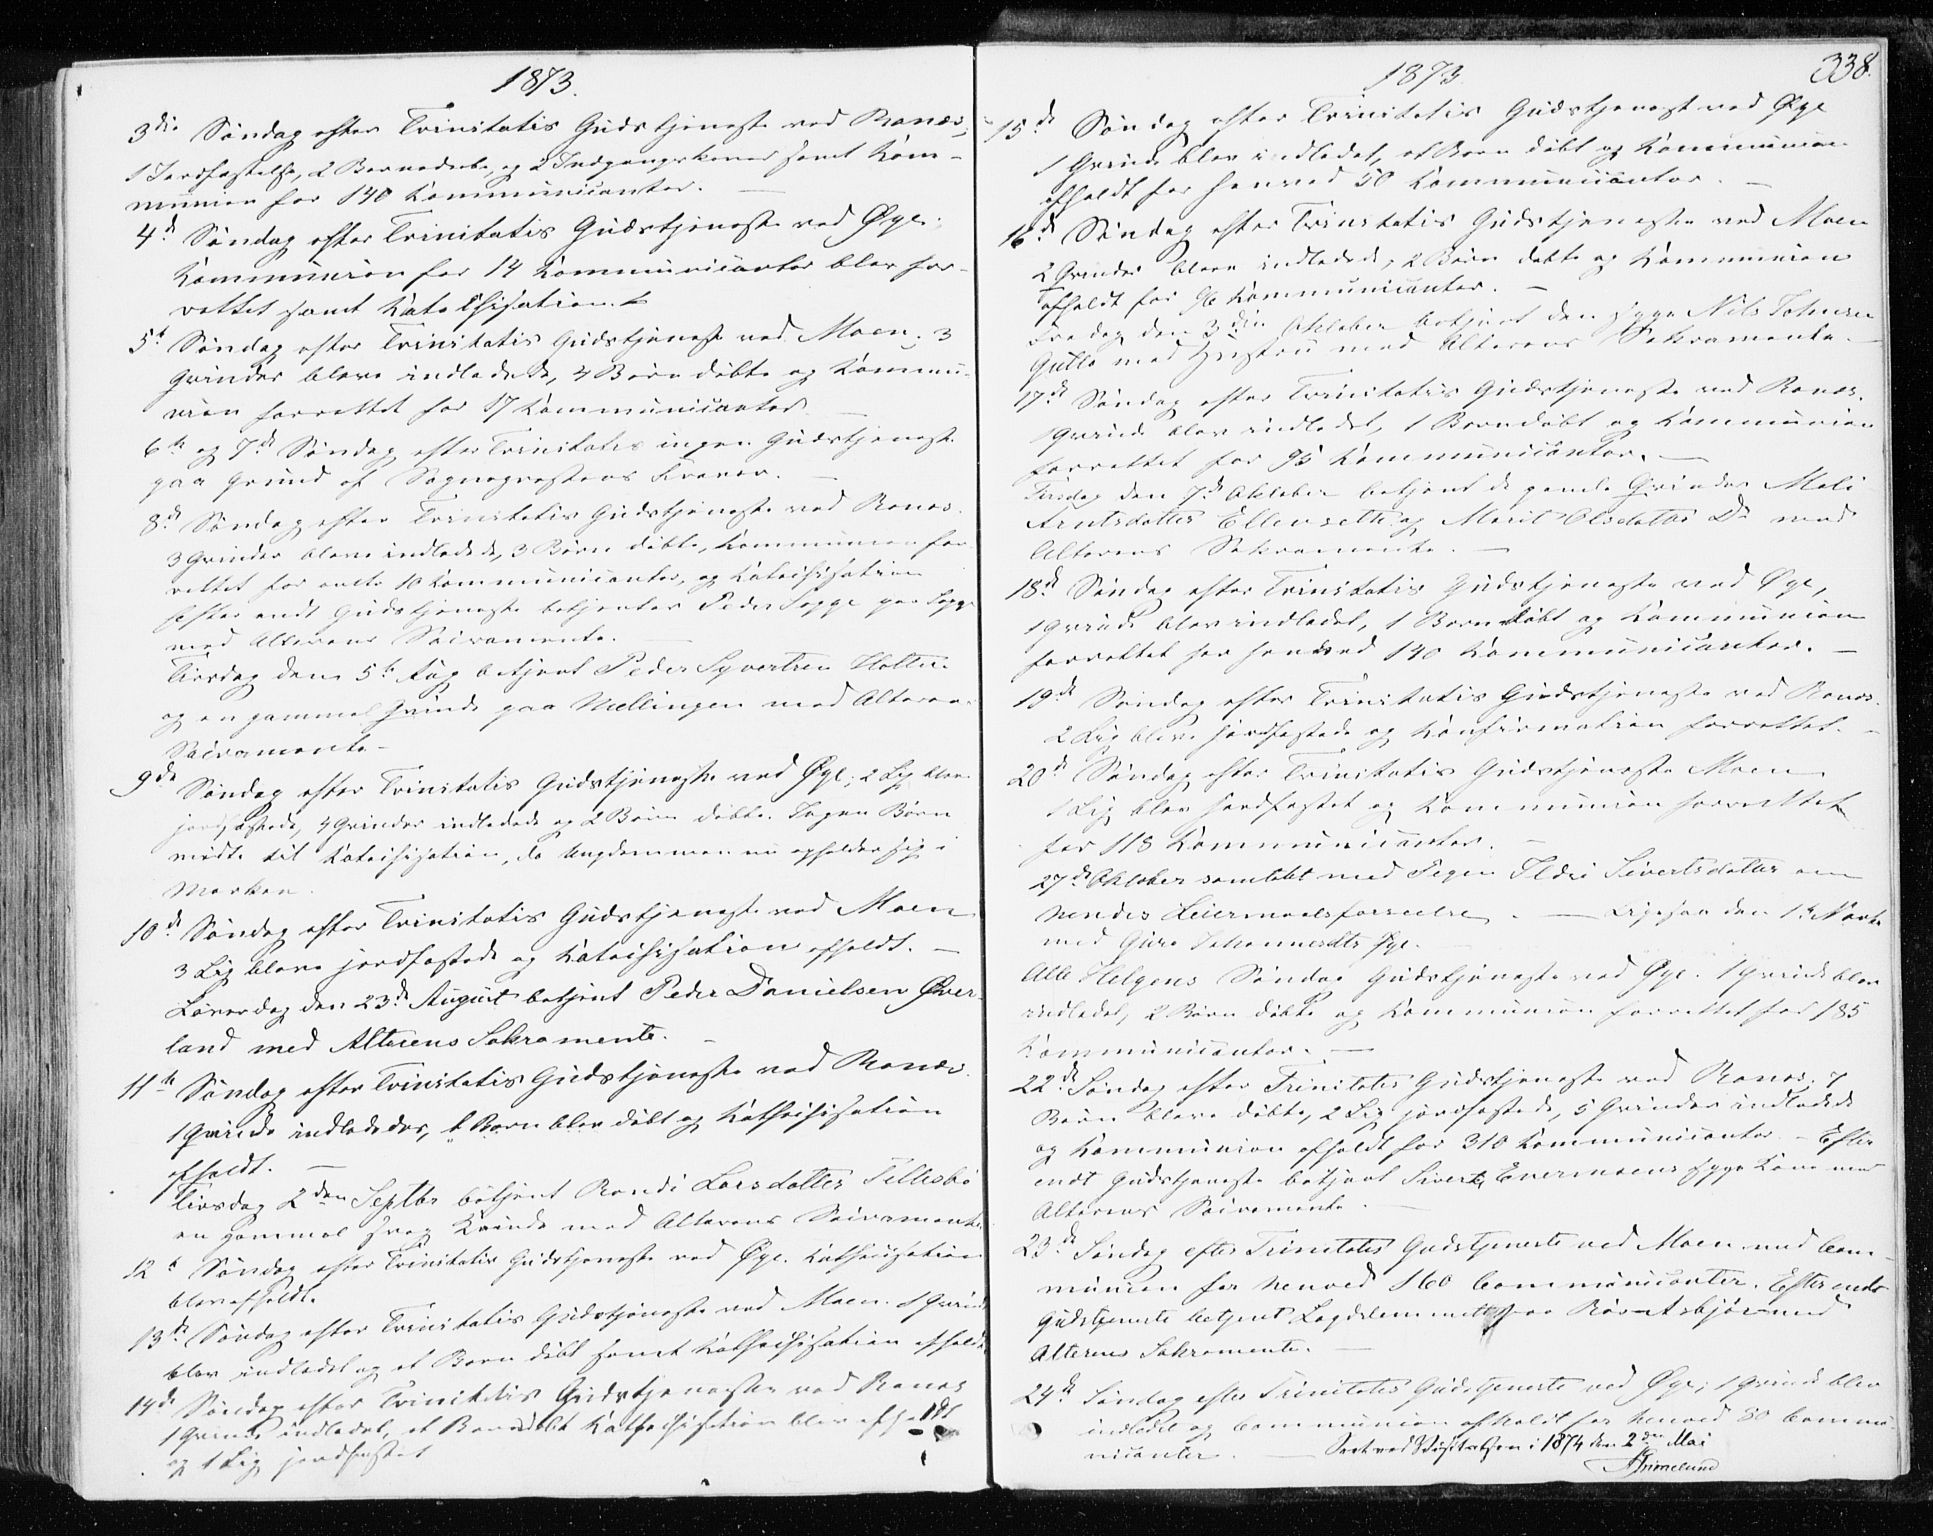 1873.
3die Søndag efter Trinitatis Gudstjeneste ved Ranæs,
1 Jordfæstelse, 2 Barnedaabe, og 2 Indgangskoner samt Kom-
munion for 140 Kommunicanter. —
4d Søndag efter Trinitatis Gudstjeneste ved Øye.
Kommunion for 14 Kommunicanter blev for-
rettet samt Katechisation.
5t Søndag efter Trinitatis Gudstjeneste ved Moen. 3
Qvinder bleve indledede, 4 Børn døbte og Kommu-
nion forrettet for 17 Kommunicanter —
6te og 7d Søndag efter Trinitatis ingen Gudstjeneste
paa Grund af Sognepræstens Fravær. —
8d Søndag efter Trinitatis Gudstjeneste ved Ranæs.
3 Qvinder bleve indledede, 3 Børn døbte, Kommunion for-
rettet for 10 Kommunicanter, og Katechisation
Efter endt Gudstjeneste betjentes Peder Sogge paa Sogge
med Alterens Sacramente. —
Tirsdag den 5te Aug betjent Peder Syvertsen Holten
og en gammel Qvinde paa Mællingen med Alterens
Sacramente —
9de Søndag efter Trinitatis Gudstjeneste ved Øye; 2 Lig bleve
jordfæstede, 4 Qvinder indledede og 2 Børn døbte. Ingen Børn
mødte til Katechisation, da Ungdommen nu opholder sig i
Marken.
10d Søndag efter Trinitatis Gudstjeneste ved Moen
3 Lig bleve jordfæstede og Katechisation afholdt. —
Løverdag den 23d August betjent Peder Danielsen Øver-
land med Alterens Sakramente. —
11te Søndag efter Trinitatis Gudstjeneste ved Ranæs.
1 Qvinde indlededes, 1 Barn blev døbt og Kathechisation
afholdt. —
Tirsdag 2den Septbr betjent Randi Larsdatter Tellesbø
en gammel svag Kvinde med Alterens Sacramente
12t Søndag efter Trinitatis Gudstjeneste ved Øye. Kathechisation
blev afholdt.
13de Søndag efter Trinitatis Gudstjeneste ved Moen. 1 Qvinde
blev indledet og et Barn døbt samt Kathechisation afholdt
14de Søndag efter Trinitatis Gudstjeneste ved Ranæs
1 Qvinde indledet, et Barn døbt Kathechisation blev afholdt
og 1 Lig jordfæstet
1873.
338.
15de Søndag efter Trinitatis Gudstjeneste ved Øye
1 Qvinde blev indledet, et Barn døbt og Kommunion
afholdt for henved 50 Kommunicanter. —
16d Søndag efter Trinitatis Gudstjeneste ved Moen
2 Qvinder bleve indledede, 2 Børn døbte og Kommunion
afholdt for 96 Kommunicanter. —
Fredag den 3die Oktober betjent den syge Nils Johnsen
Gulla med Hustru med Alterens Sakramente. —
17d Søndag efter Trinitatis Gudstjeneste ved Ranæs.
1 Qvinde blev indledet, 1 Barn døbt og Kommunion
forrettet for 95 Kommunicanter. —
Tirsdag den 7d Oktober betjent de gamle Qvinder Mali
Arntsdatter Ellensette og Marit Olsdatter Do med
Alterens Sakramente. —
18d Søndag efter Trinitatis Gudstjeneste ved Øye,
1 Qvinde blev indledet, 1 Barn døbt og Kommunion
forrettet for henved 140 Kommunicanter. —
19de Søndag efter Trinitatis Gudstjeneste ved Ranæs.
2 Lig bleve jordfæstede og Konfirmation forrettet. —
20d Søndag efter Trinitatis Gudstjeneste Moen
1 Lig blev jordfæstet og Kommunion forrettet
for 118 Kommunicanter. —
27d Oktober samtalet med Pigen Ildri Sivertsdatter om
hendes Leiermaalsforseelse. — Ligesaa den 1te Novbr
med Guro Johannesdtr Øye.
Alle Helgens Søndag Gudstjeneste ved Øye. 1 Qvinde blev
indledet, 2 Børn døbte og Kommunion forrettet for 185
Kommunicanter. —
22de Søndag efter Trinitatis Gudstjeneste ved Ranæs. 7
Børn bleve døbte, 2 Lig jordfæstede, 5 Qvinder indledede
og Kommunion afholdt for 310 Kommunicanter. — Efter
endt Gudstjeneste betjent Sivert Evermoens syge Kone med
Alterens Sacramente. —
23de Søndag efter Trinitatis Gudstjeneste ved Moen med Com-
munion for henved 160 Communicanter. Efter endt
Gudstjeneste betjent Lægdslem paa Røv Arsbjørn med
Alterens Sakramente. —
24de Søndag efter Trinitatis Gudstjeneste ved Øye; 1 Qvinde blev
indledet og Communion afholdt for henved 80 Commu-
nicanter. — Seet ved Visitatsen i 1874 den 2den Mai
Grimelund